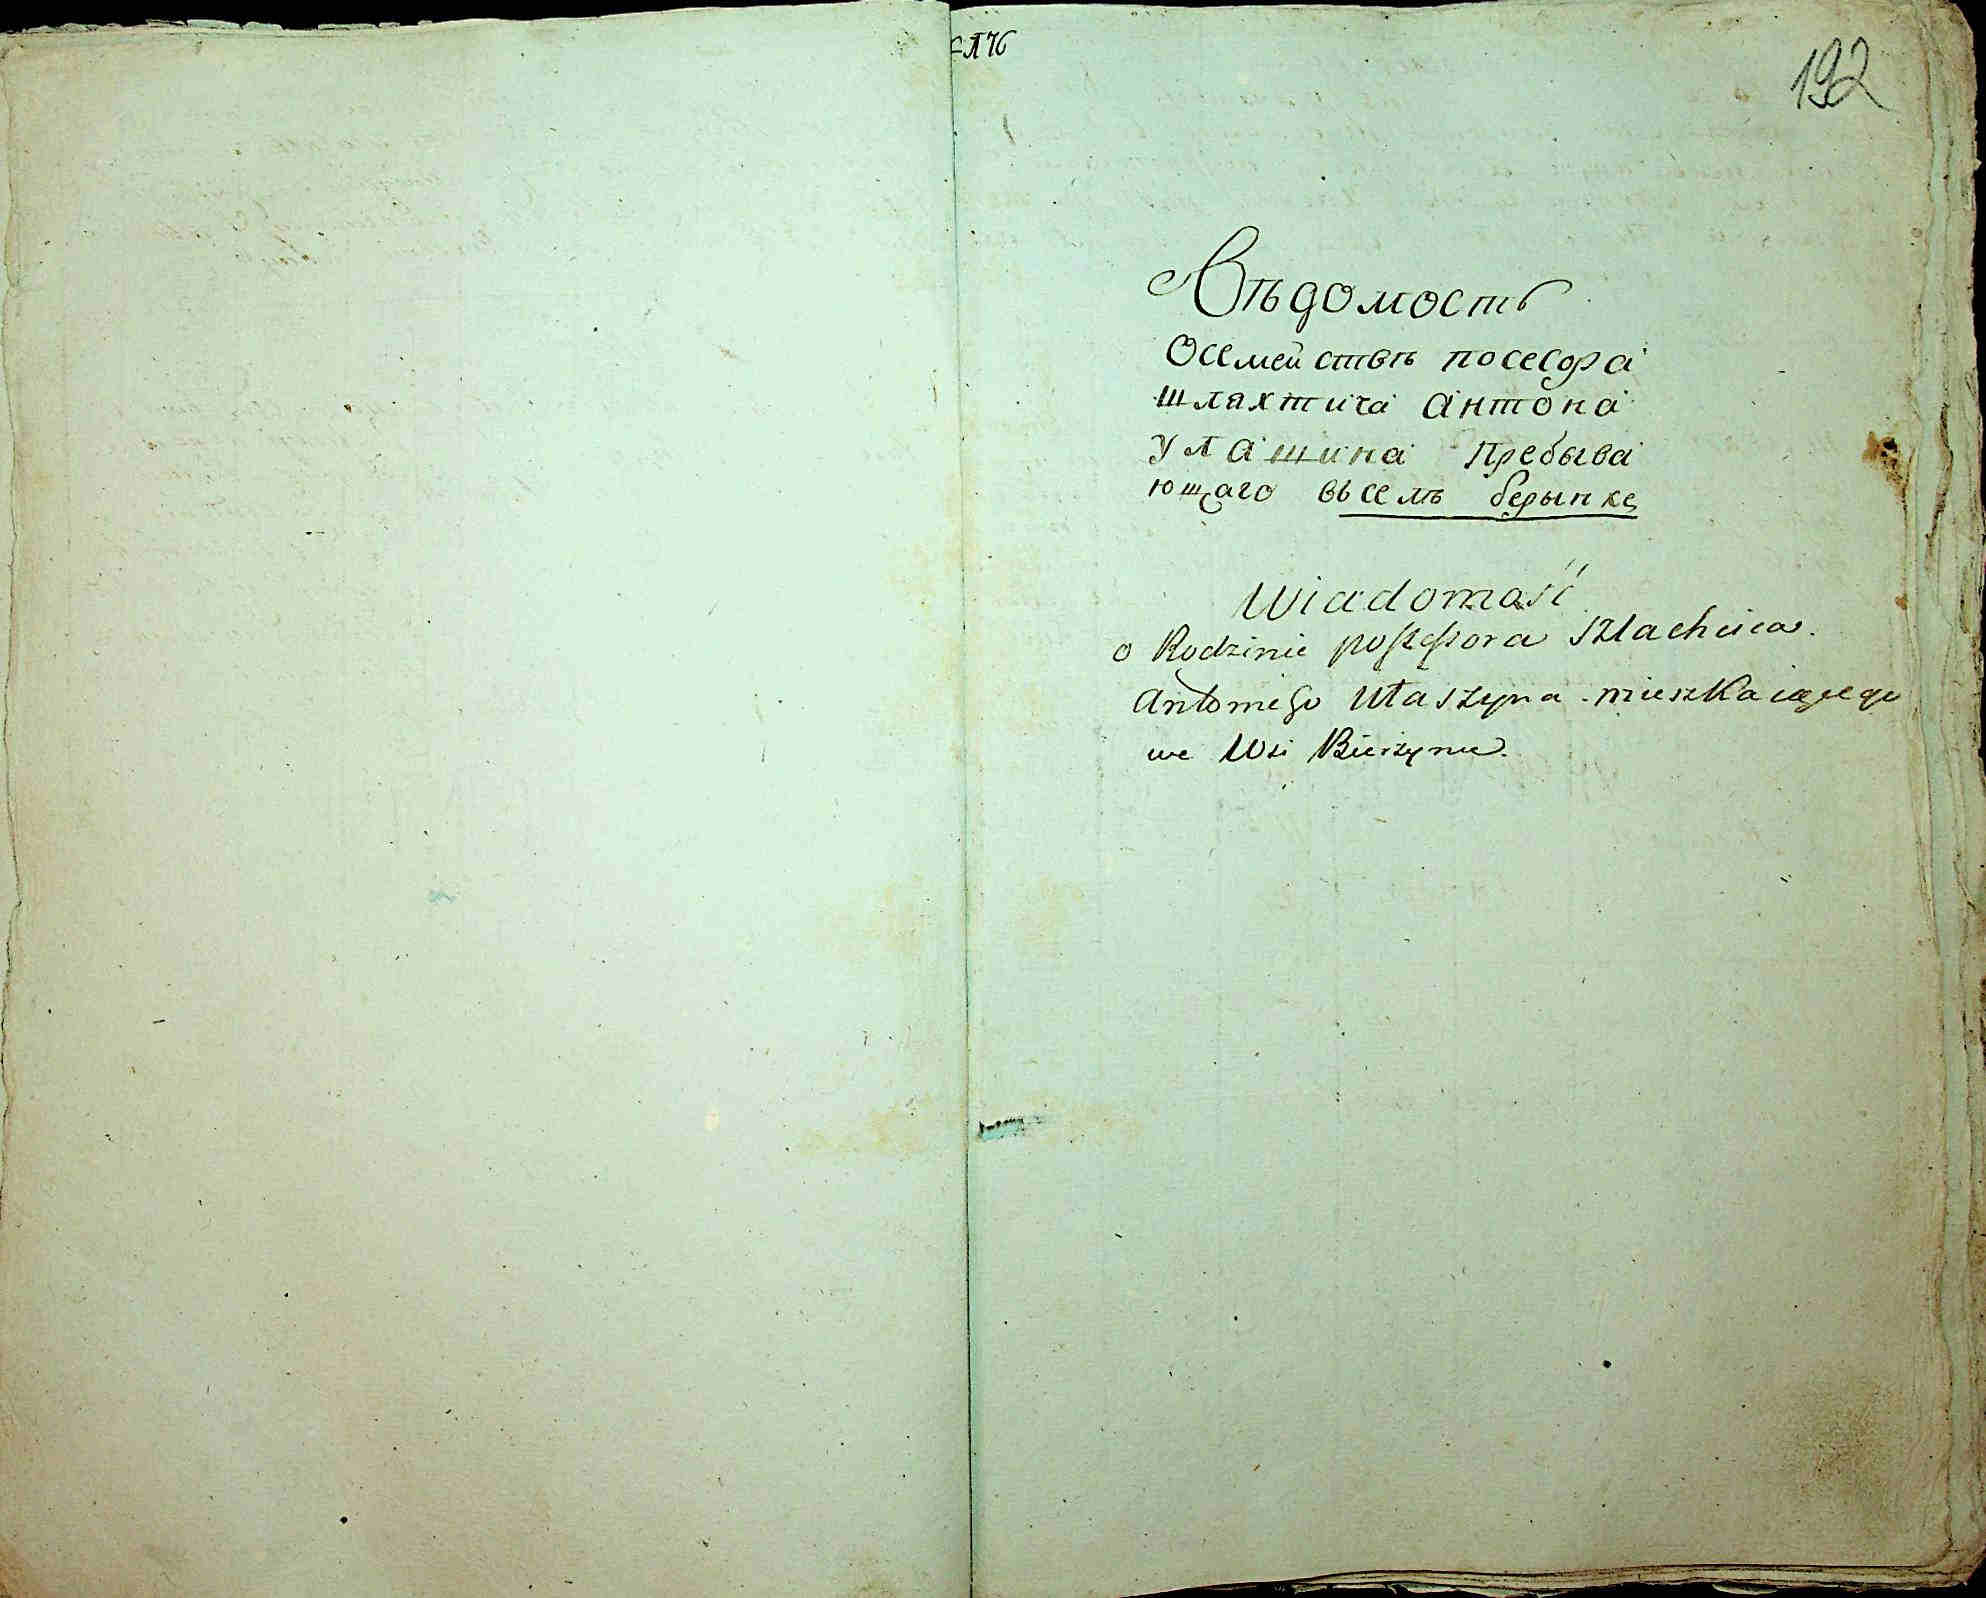 192
Вѣдомость
Осемействѣ посесора
шляхтича Антона
Улашина Пребыва
ющаго вьселѣ берынке
Wiadomość
o Rodzinie possessora Szlachcica.
Antoniego Ułaszyna mieszkaiącego
we Wsi Bierzynce.